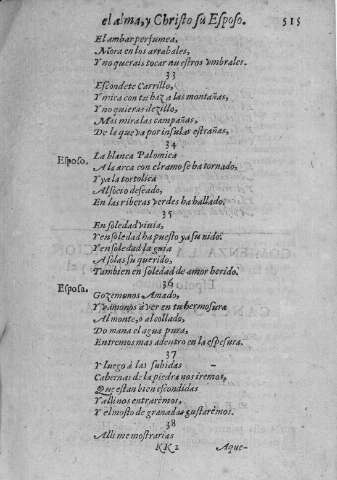 el alma, y Christo su Esposo. 515
El ambar perfumea,
Mora en los arrabales,
Y no querais tocar nuestros vmbrales.
33
Escondete Carrillo,
Y mira con tu haz a las montañas,
Y no quieras dezillo,
Mas mira las campañas,
De la que va por insulas estrañas,
34
Esposo. La blanca Palomica
A la arca con el ramo se ha tornado,
Y ya la tortolica
Al socio deseado,
En las riberas verdes ha hallado.
35
En soledad viuia,
Y en soledad ha puesto ya su nido:
Y en soledad la guia
A solas su querido,
Tambien en soledad de amor herido.
36
Esposa. Gozemonos Amado,
Y vamonos à ver en tu hermosura
Al monte, ò al collado,
Do mana el agua pura,
Entremos mas adentro en la espesura.
37
Y luego à las subidas
Cabernas de la piedra nos iremos,
Que estan bien escondidas
Y alli nos entraremos,
Y el mosto de granadas gustaremos.
38
Alli me mostrarias
KK2 Aque-